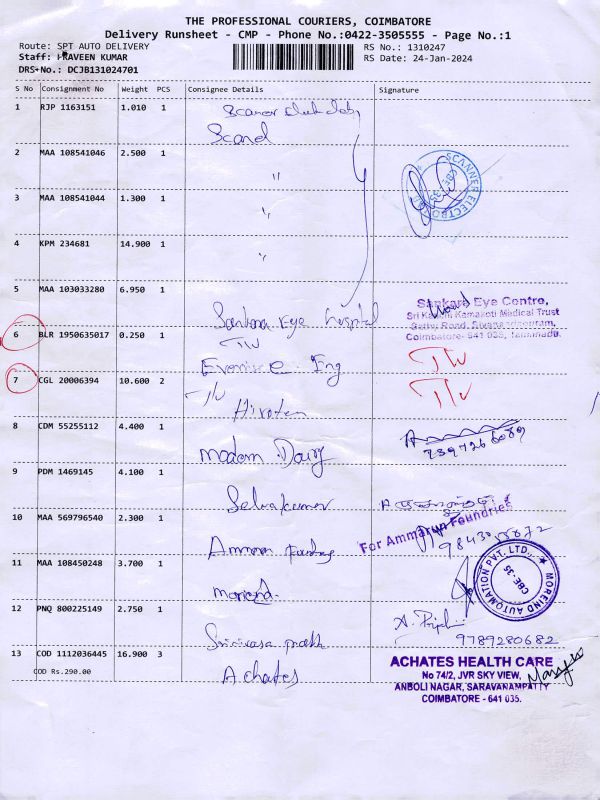 THE PROFESSIONAL COURIERS, COIMBATORE
Delivery Runsheet - CMP - Phone No.:0422-3505555 - Page No.:1
Route: SPT AUTO DELIVERY RS No.: 1310247
Staff: PRAVEEN KUMAR RS Date: 24-Jan-2024
DRS+No.: DCJB131024701
S No Consignment No Weight PCS Consignee Details Signature
1 RJP 1163151 1.010 1
Scand
2 MAA 108541046 2.500 1 "
SCANNER ELECTRO
3 MAA 108541044 1.300 1 "
4 KPM 234681 14.900 1 "
5 MAA 103033280 6.950 1
Sankara Eye hospital
Sankara Eye Centre,
Sri Kanchi Kamakoti Medical Trust
Sathy Road, Sivanandapuram,
Coimbatore- 641 035, Tamilnadu.
6 BLR 1950635017 0.250 1
Eng
7 CGL 20006394 10.600 2
8 CDM 55255112 4.400 1
Modern Dairy
9 PDM 1469145 4.100 1
Selvakumar
10 MAA 569796540 2.300 1
For Ammarun Foundries
11 MAA 108450248 3.700 1
MOREIND AUTOMATION PVT. LTD.,
CBE-35
12 PNQ 800225149 2.750 1
9789280682
13 COD 1112036445 16.900 3
COD Rs.290.00
Achates
ACHATES HEALTH CARE
No 74/2, JVR SKY VIEW,
ANBOLI NAGAR, SARAVANAMPATTY
COIMBATORE - 641 035.